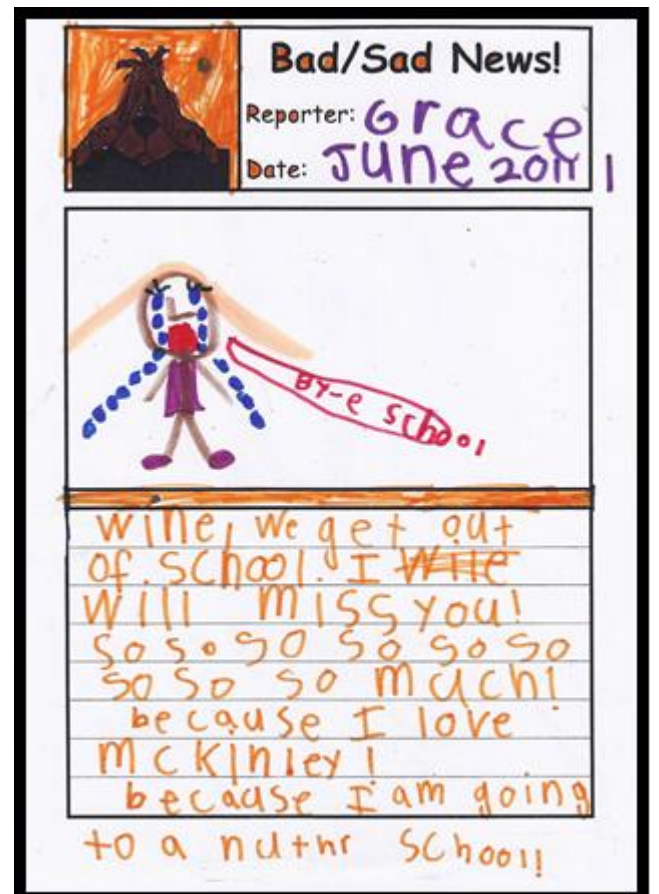 Bad/Sad News!
Reporter: Grace
Date: June 2011
BY-e School
wine, we get out
of school. I wile
will miss you!
so so so so so so
so so so much!
because I love
mckinley!
because I am going
to a nuthr school!